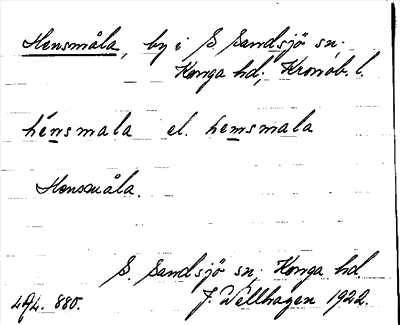 Hensmåla, by i S. Sandsjö sn;
Konga hd; Kronob. l.
hénsmala el. hemsmala
Hensmåla.
S. Sandsjö sn; Konga hd.
J. Wellhagen 1922.
880.